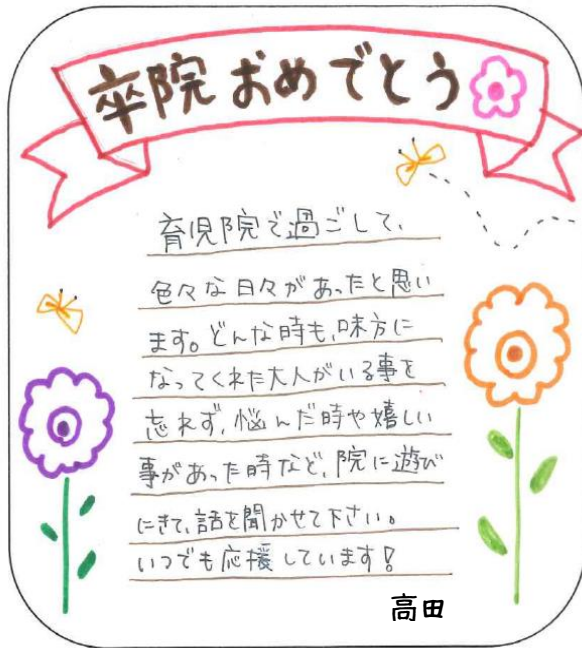 卒院おめでとう
育児院で過ごして、
色々な日々があったと思い
ます。どんな時も、味方に
なってくれた大人がいる事を
忘れず、悩んだ時や嬉しい
事があった時など、院に遊び
にきて、話を聞かせて下さい。
いつでも応援しています!
高田